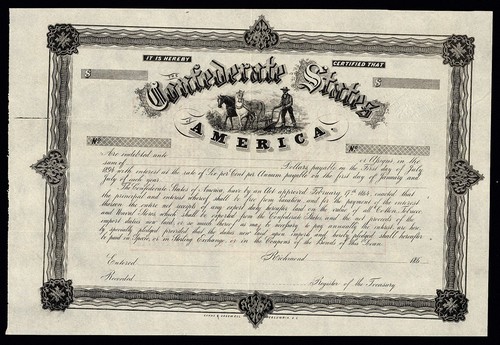 IT IS HEREBY CERTIFIED THAT
$ $
THE Confederate States
OF
AMERICA
No No
Are indebted unto or Assigns, in the
sum of Dollars payable on the First day of July
1894 with interest at the rate of Six per Cent per Annum payable on the first day of January and
July of each year.
The Confederate States of America, have by an Act approved February 17th 1864 enacted that
the principal and interest whereof shall be free from taxation and for the payment of the interest
thereon the entire net receipts of any export duty hereafter laid on the value of all Cotton, Tobacco
and Naval Stores which shall be exported from the Confederate States and the net proceeds of the
import duties now laid or so much thereof as may be necessary to pay annually the interest are here
by specially pledged provided that the duties now laid upon import and hereby pledged shall hereafter
be paid in Specie, or in Sterling Exchange or in the Coupons of the Bonds of this Loan.
Entered Richmond 186
Recorded Register of the Treasury
EVANS & COGSWELL COLUMBIA S.C.